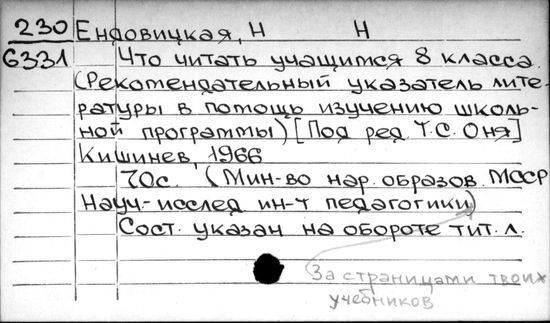 230 Ендовицкая, Н Н
6331 Что читать учащимся 8 класса.
(Рекомендательный указатель лите-
ратуры в помощь изучению школь-
ной программы) [Под ред. Т.С. Оня]
Кишинев, 1966
70с. (Мин-во нар. образов. МССР
Науч-исслед ин-т педагогики)
Сост. указан на обороте тит. л.
За страницами твоих
учебников